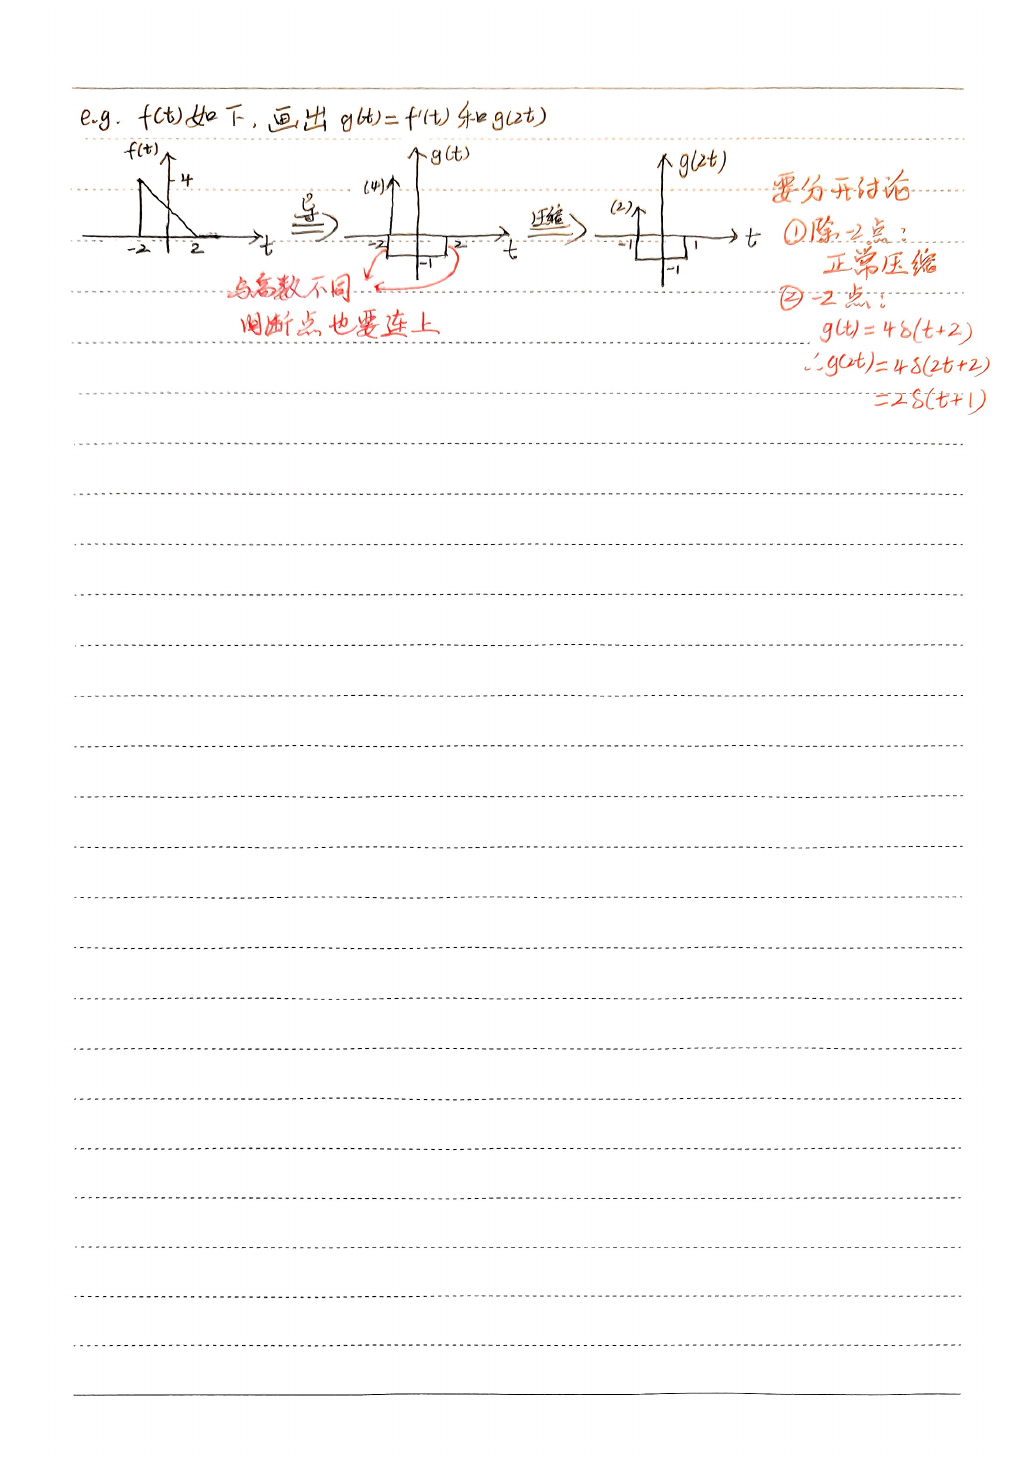 e.g. f(t)如下,画出 g(t)=f'(t) 和g(2t)
f(t)
4
-2
2
t
导
g(t)
(4)
-2
2
-1
t
压缩
g(2t)
(2)
-1
1
-1
t
与高数不同
间断点也要连上
要分开讨论
①除-2点:
正常压缩
②-2点:
g(t)=4δ(t+2)
∴g(2t)=4δ(2t+2)
=2δ(t+1)